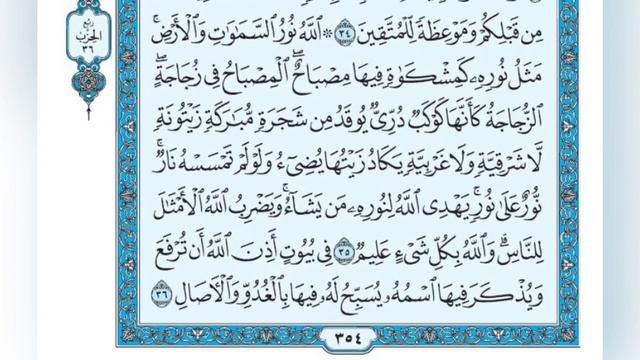 مِن قَبْلِكُمْ وَمَوْعِظَةً لِّلْمُتَّقِينَ ٣٤ ۞ اللَّهُ نُورُ السَّمَٰوَٰتِ وَالْأَرْضِۚ
مَثَلُ نُورِهِۦ كَمِشْكَوٰةٍ فِيهَا مِصْبَاحٌۖ الْمِصْبَاحُ فِي زُجَاجَةٍۖ
الزُّجَاجَةُ كَأَنَّهَا كَوْكَبٌ دُرِّيٌّ يُوقَدُ مِن شَجَرَةٍ مُّبَٰرَكَةٍ زَيْتُونَةٍ
لَّا شَرْقِيَّةٍ وَلَا غَرْبِيَّةٍ يَكَادُ زَيْتُهَا يُضِيٓءُ وَلَوْ لَمْ تَمْسَسْهُ نَارٌۚ
نُّورٌ عَلَىٰ نُورٍۗ يَهْدِي اللَّهُ لِنُورِهِۦ مَن يَشَآءُۚ وَيَضْرِبُ اللَّهُ الْأَمْثَٰلَ
لِلنَّاسِۗ وَاللَّهُ بِكُلِّ شَيْءٍ عَلِيمٌ ٣٥ فِي بُيُوتٍ أَذِنَ اللَّهُ أَن تُرْفَعَ
وَيُذْكَرَ فِيهَا اسْمُهُۥ يُسَبِّحُ لَهُۥ فِيهَا بِالْغُدُوِّ وَالْءَاصَالِ ٣٦
٣٥٤
ربع
الحزب
٣٦